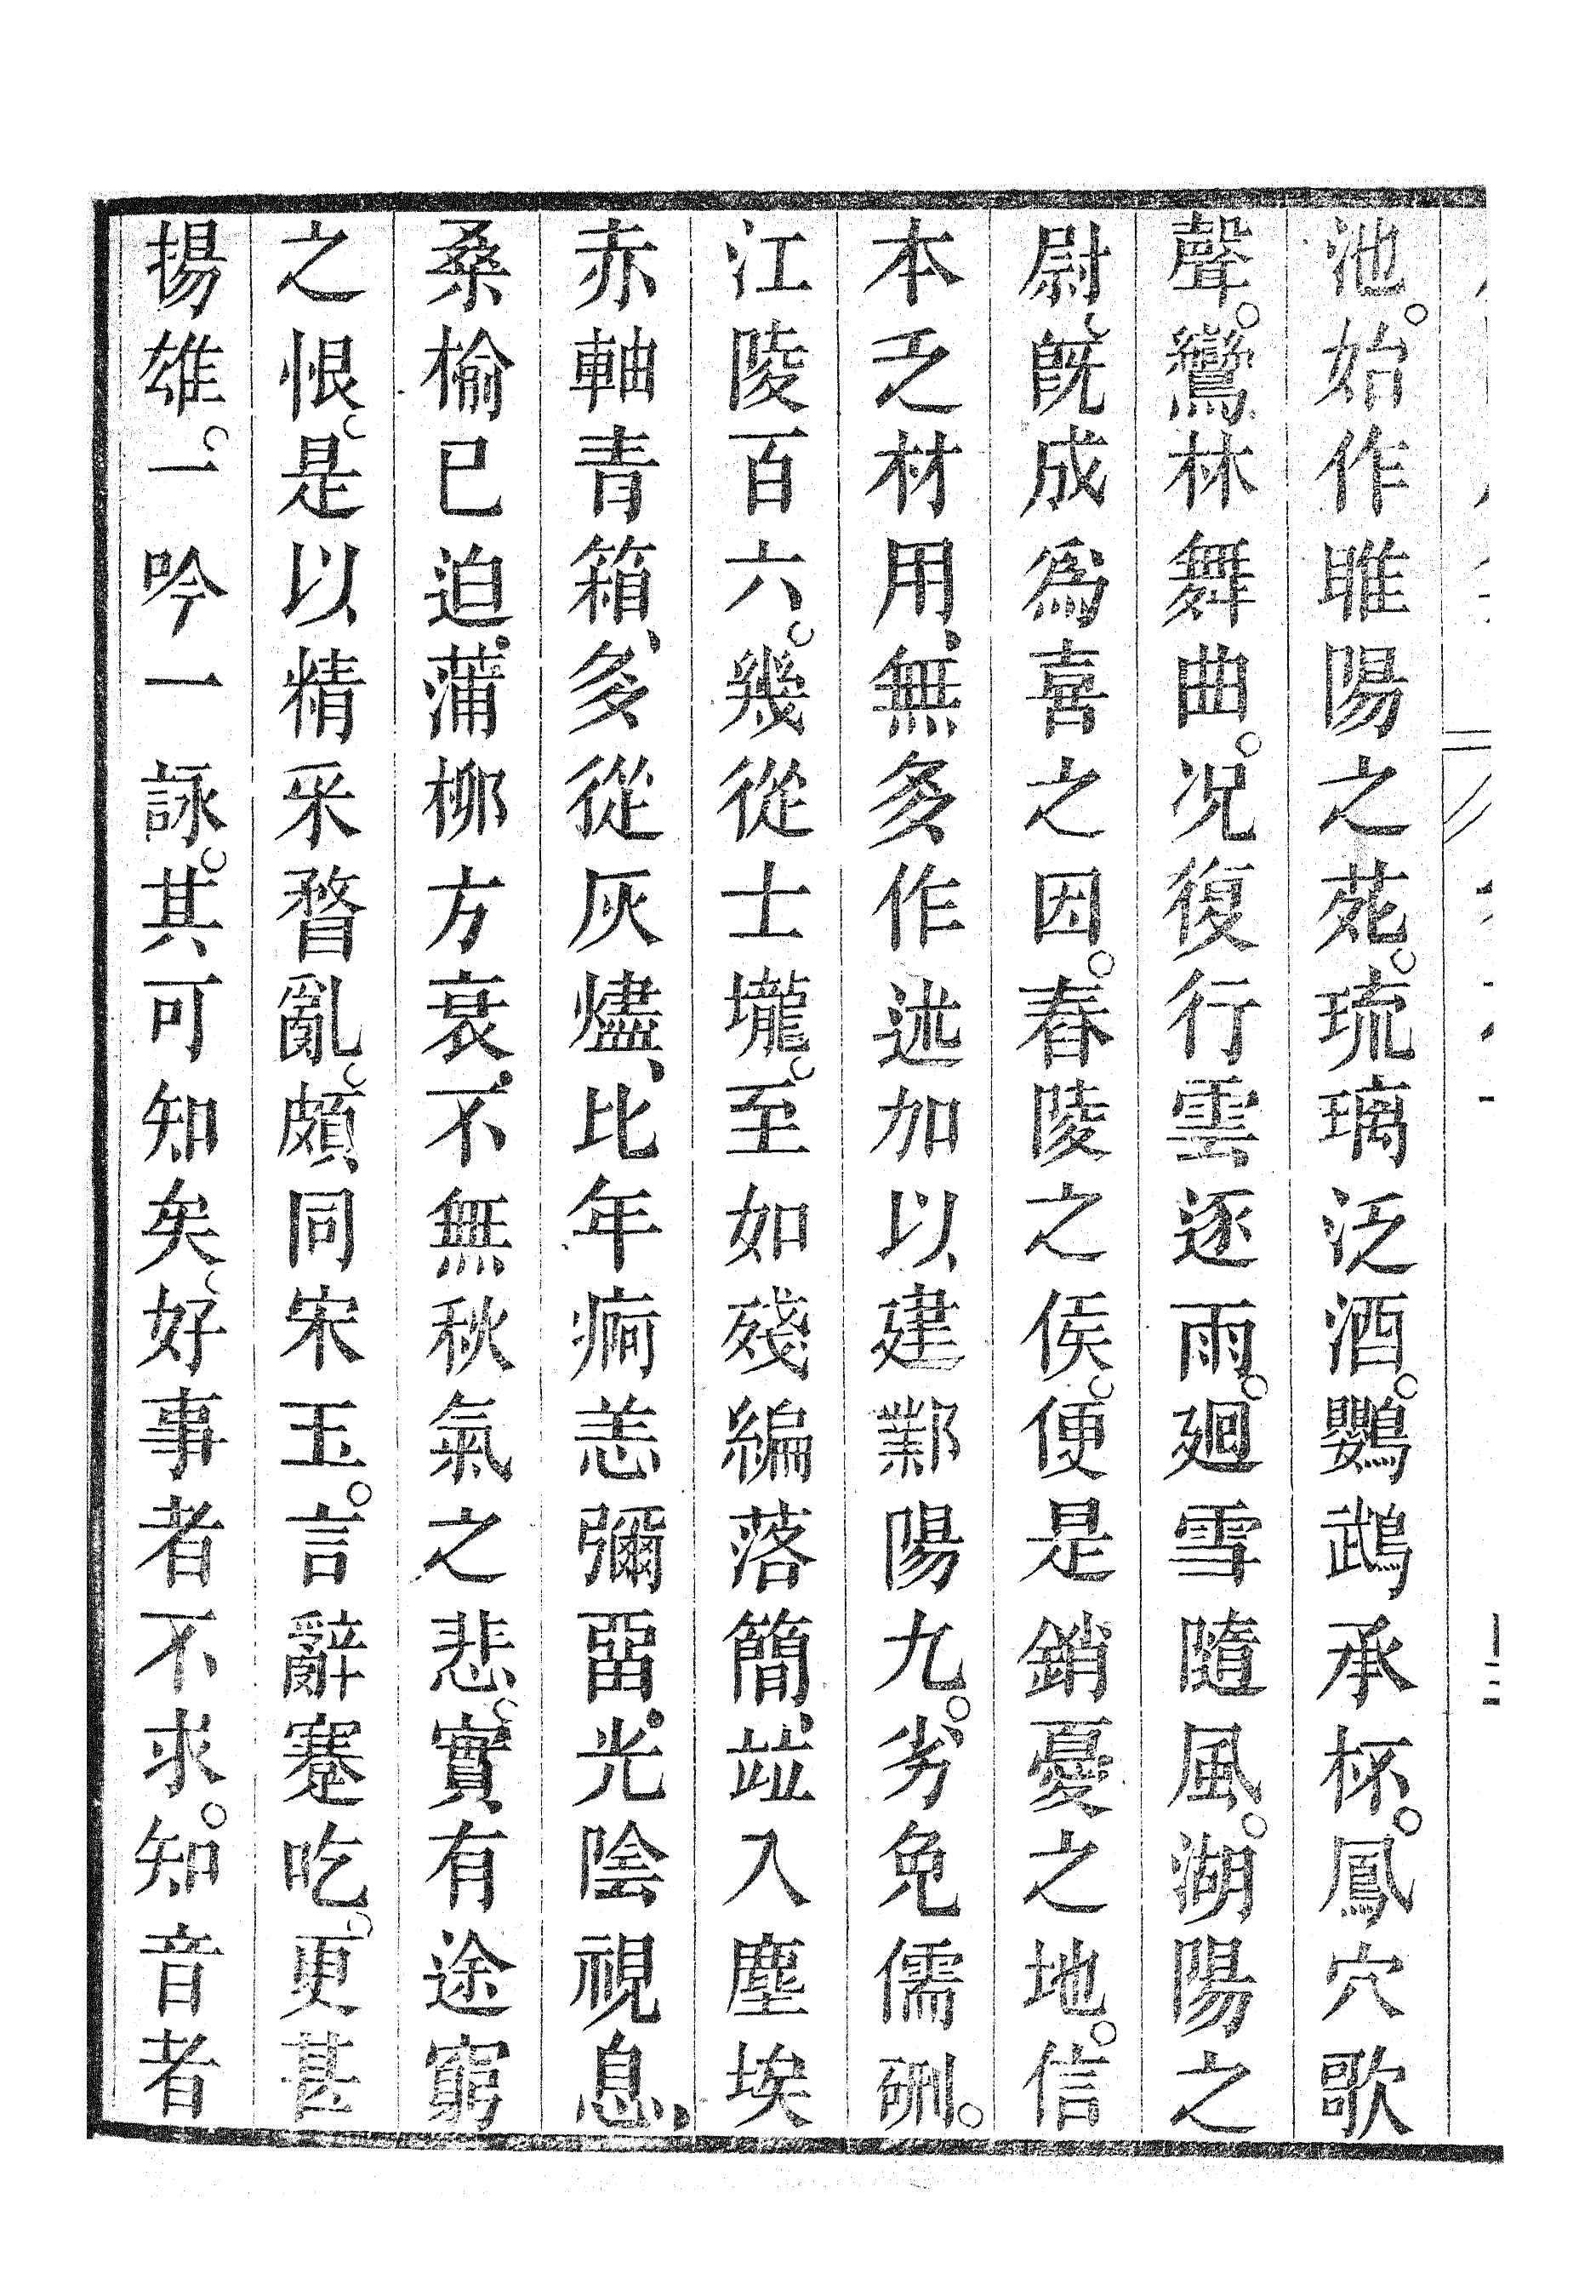 池。始作睢陽之苑。琉璃泛酒。鸚鵡承杯。鳳穴歌
聲。鸞林舞曲。况復行雲逐雨。廻雪隨風。湖陽之
尉。旣成爲喜之因。舂陵之侯。便是銷憂之地。信
本乏材用、無多作述加以建鄴陽九。劣免儒硎。
江陵百六。幾從士壠。至如殘編落簡、竝入塵埃
赤軸青箱、多從灰燼、比年痾恙彌畱、光陰視息、
桑榆已迫、蒲柳方衰、不無秋氣之悲。實有途窮
之恨。是以精采瞀亂。頗同宋玉。言辭蹇吃。更甚
揚雄。一吟一詠。其可知矣。好事者不求。知音者